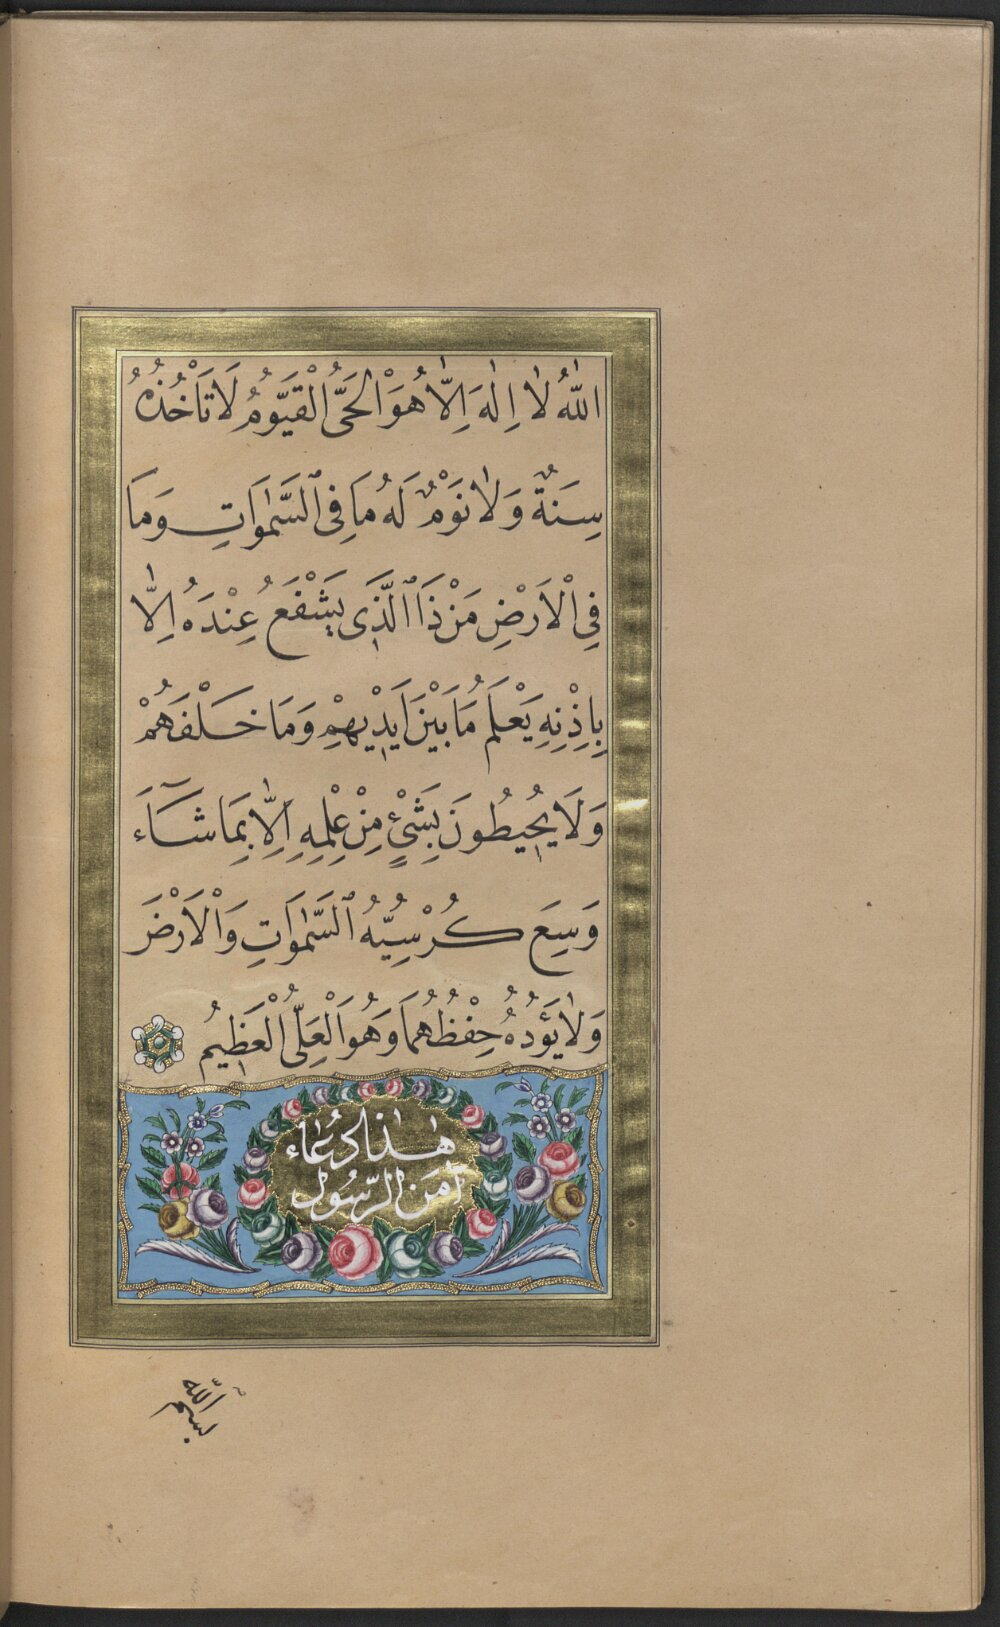 اَللّٰهُ لٰا اِلٰهَ اِلّٰا هُوَ الْحَىُّ الْقَيُّومُ لَا تَأْخُذُهُ
سِنَةٌ وَلٰا نَوْمٌ لَهُ مَا فِى السَّمٰوَاتِ وَمَا
فِى الْاَرْضِ مَنْ ذَا الَّذِى يَشْفَعُ عِنْدَهُ اِلّٰا
بِاِذْنِهِ يَعْلَمُ مَا بَيْنَ اَيْدِيهِمْ وَمَا خَلْفَهُمْ
وَلَا يُحِيطُونَ بِشَىْءٍ مِنْ عِلْمِهِ اِلّٰا بِمَا شَآءَ
وَسِعَ كُرْسِيُّهُ السَّمٰوَاتِ وَالْاَرْضَ
وَلٰا يَؤُدُهُ حِفْظُهُمَا وَهُوَ الْعَلِىُّ الْعَظِيمُ
هٰذَا دُعَاء
آمَنَ الرَّسُول
بسم الله